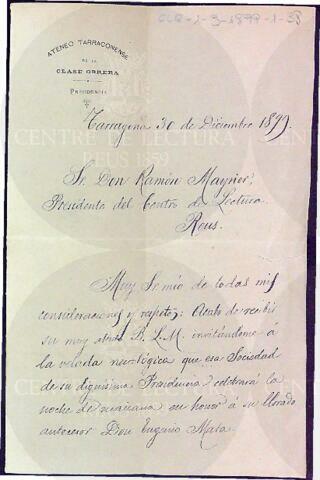 CLR-1-3-1899-1-38
ATENEO TARRACONENSE
DE LA
CLASE OBRERA
PRESIDENCIA
Tarragona 30 de Diciembre 1899.
Sr. Don Ramón Mayner,
Presidente del Centro de Lectura
Reus.
Muy Sr. mío de todas mis
consideraciones y respeto: Acabo de recibir
su muy atento B. L. M. invitándome á
la velada necrológica que esa Sociedad
de su dignísima Presidencia celebrará la
noche de mañana en honor á su llorado
antecesor Don Eugenio Mata.
CENTRE DE LECTURA
REUS 1859